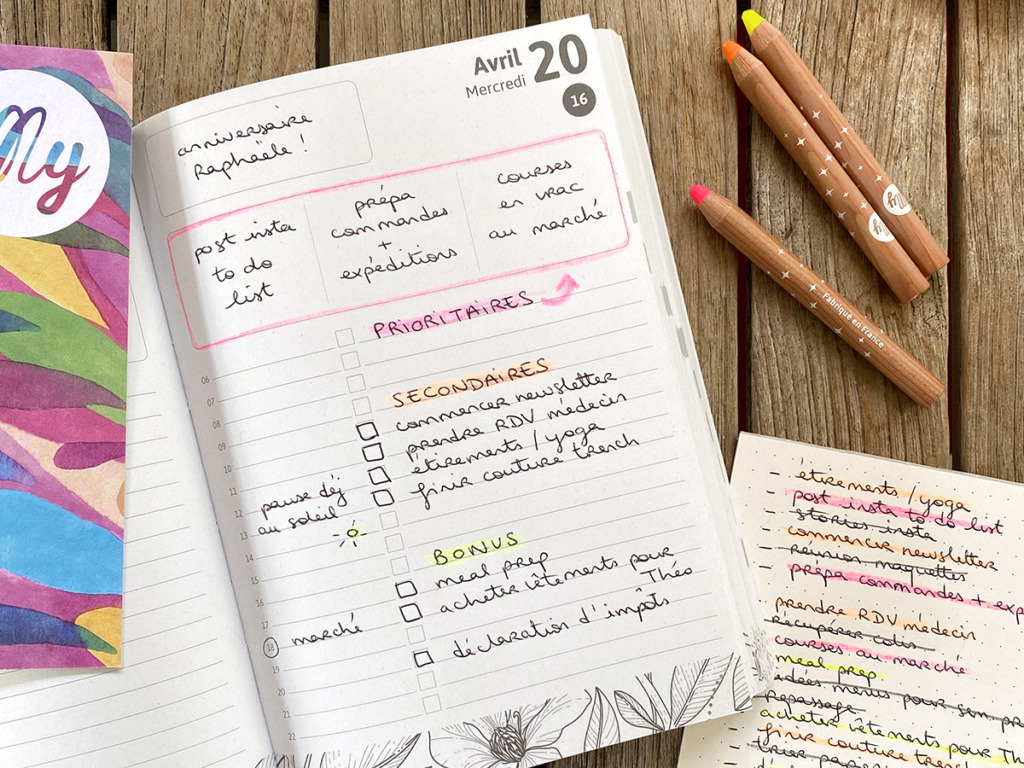 My
Avril 20
Mercredi
16
anniversaire
Raphaële !
post insta
to do
list
prépa
commandes
+
expéditions
courses
en vrac
au marché
PRIORITAIRES
06
07
SECONDAIRES
08
commencer newsletter
09
prendre RDV médecin
10
étirements / yoga
11
finir couture trench
12
pause déj
au soleil
13
14
BONUS
15
meal prep
16
acheter vêtements pour
Théo
17
18 marché
déclaration d'impôts
19
20
21
22
My
My
Fabriqué en France
- étirements / yoga
- post insta to do list
- stories insta
- commencer newsletter
- réunion maquettes
- prépa commandes + exp
prendre RDV médecin
récupérer colis
courses au marché
meal prep
idées menus pour sem pr
repassage
acheter vêtements pour Th
- finir couture trench
- trier papier